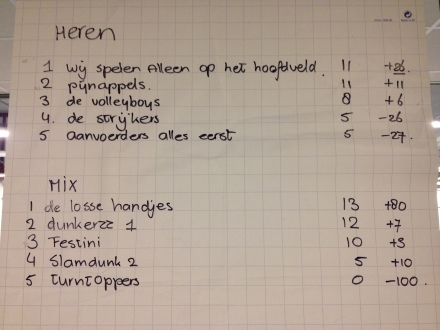 Heren
1 wij spelen Alleen op het hoofdveld. 11 +26
2 pijnappels. 11 +11
3 de volleyboys 8 +6
4. de strijkers 5 -26
5 aanvoerders alles eerst 5 -27.
Mix
1 de losse handjes 13 +80
2 dunkerzz 1 12 +7
3 Festini 10 +3
4 Slamdunk 2 5 +10
5 Turntoppers 0 -100.